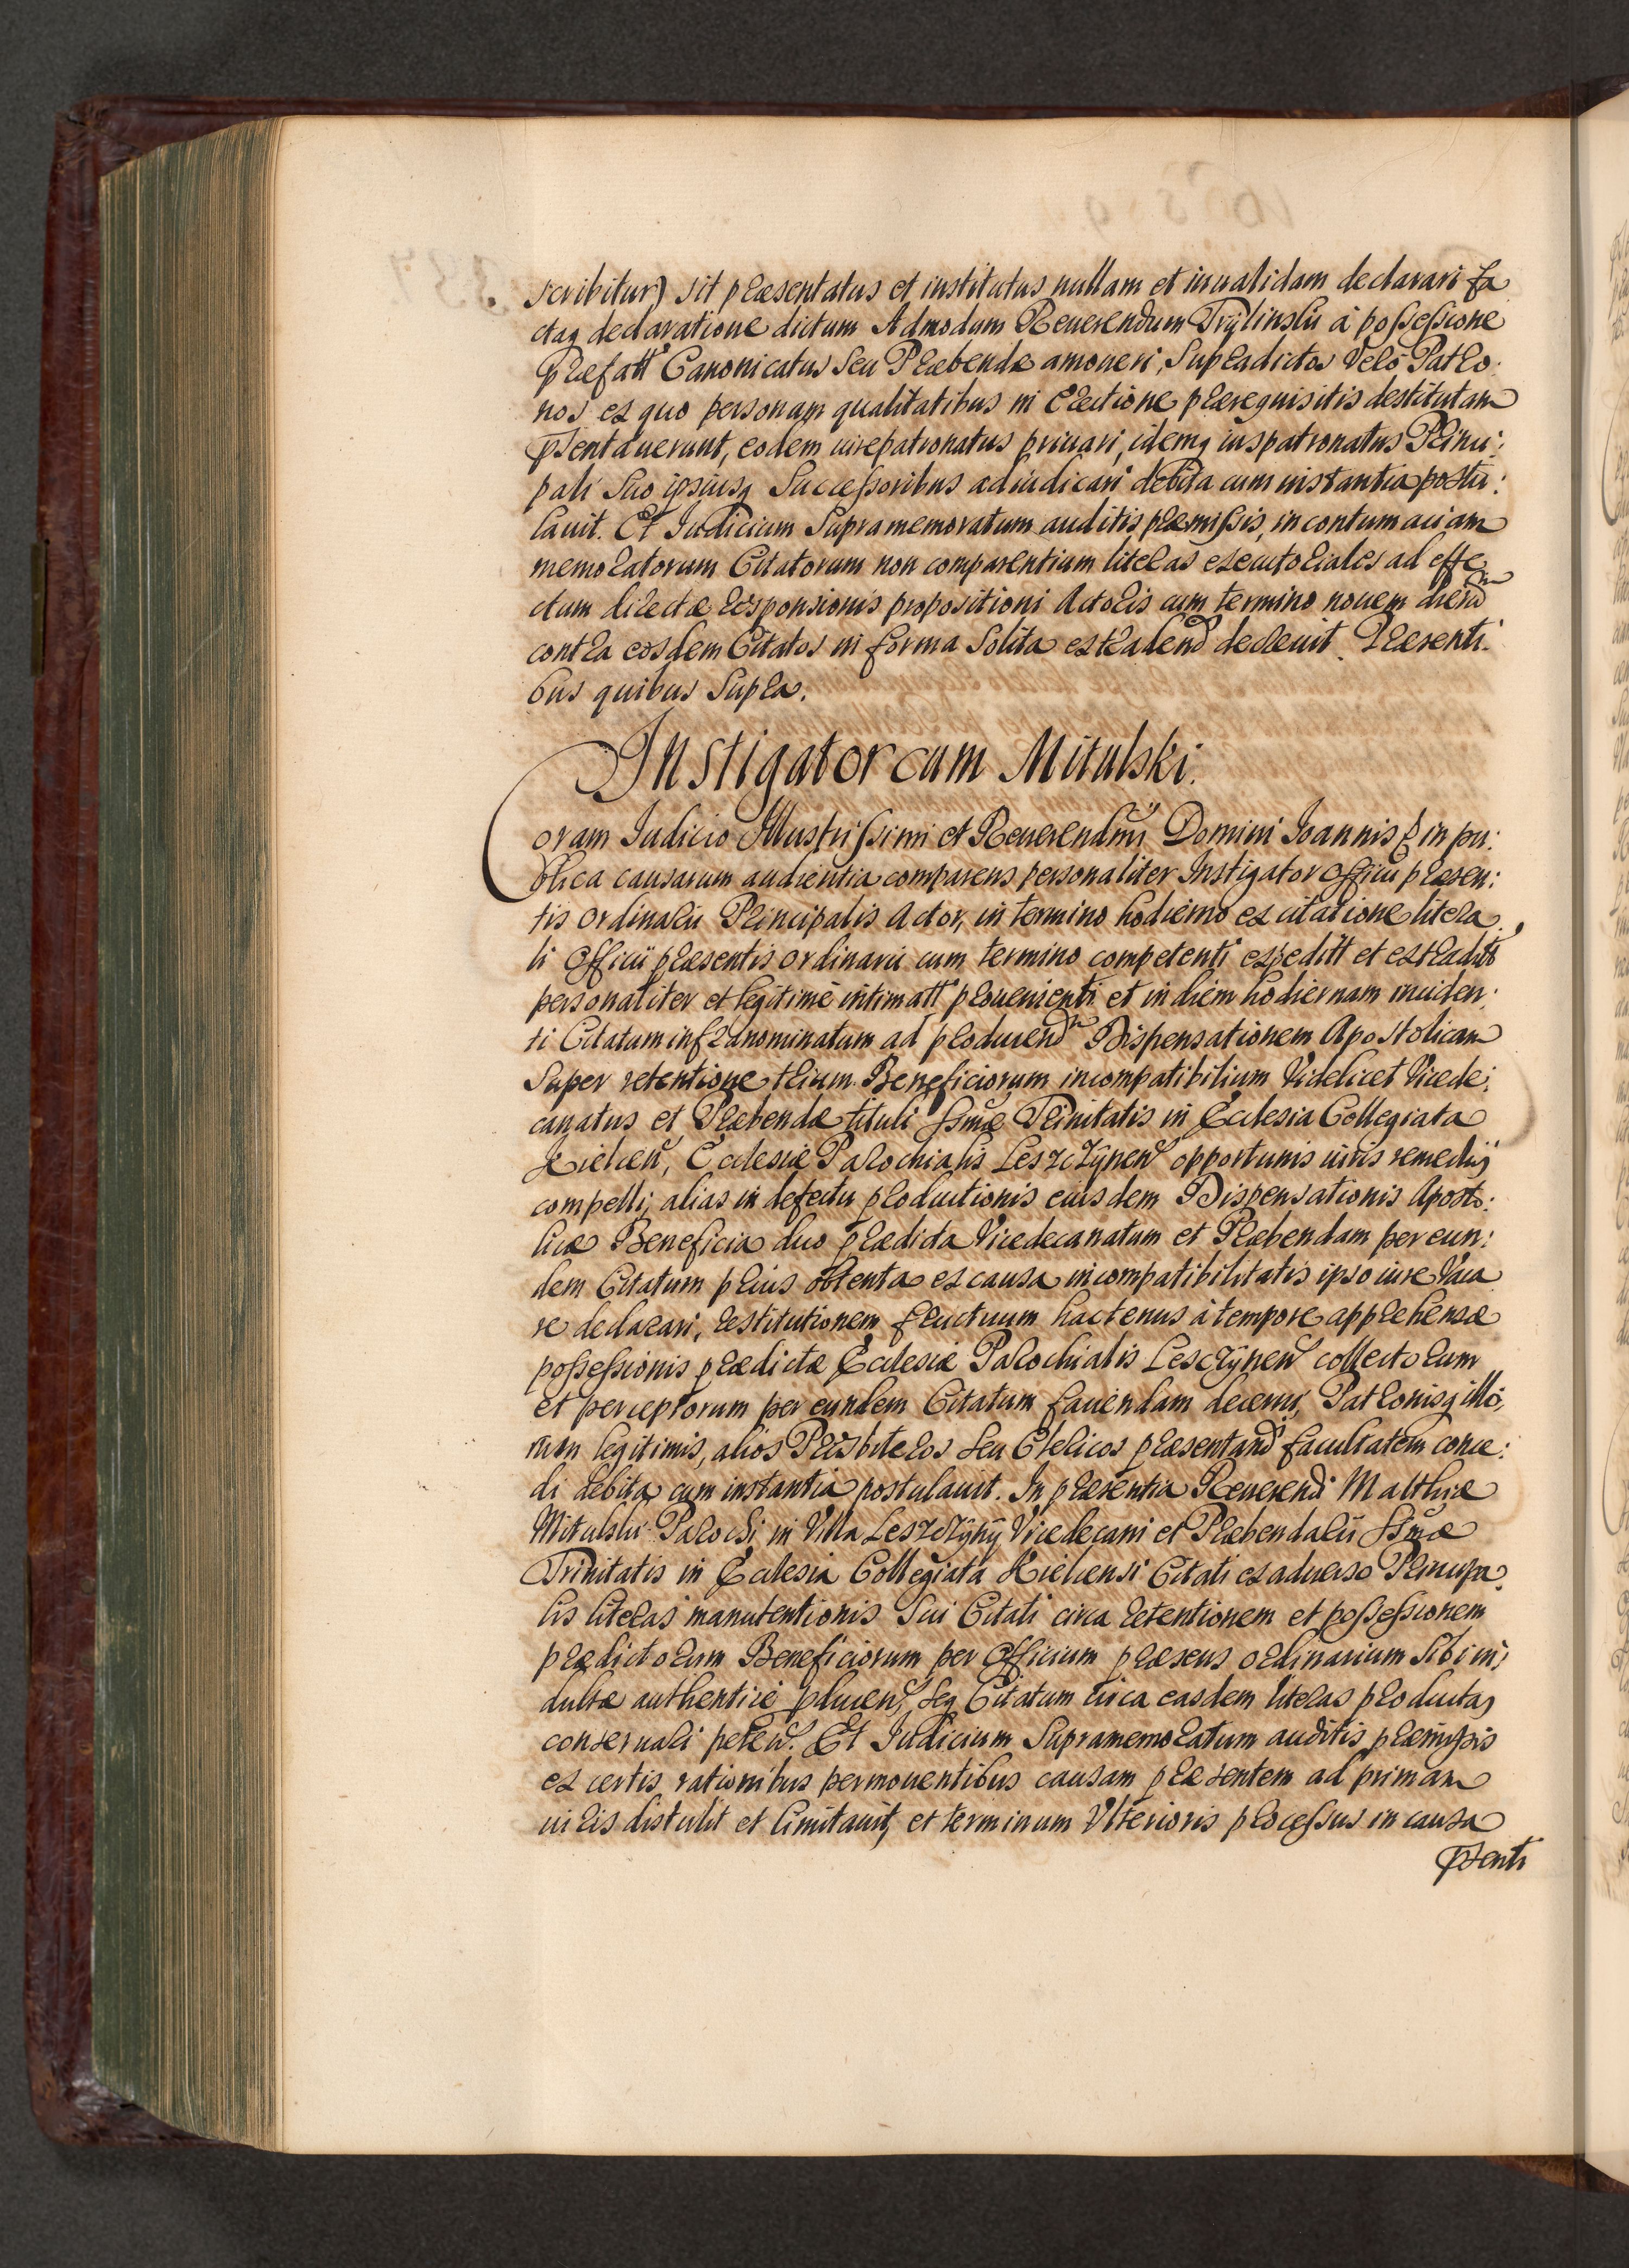 scribitur) sit præsentatus et institutus nullam et inualidam declarari fa
ctaq declaratione dictum Admodum Reuerendum Trylinskii à possessione
præfatt Canonicatus seu Præbendæ amoueri, Supradictos Verò Patro:
nos ex quo personam qualitatibus in Electione prærequisitis destitutam
pñtentauerunt, eodem iurepatronatus priuari, idemq iuspatronatus Princi:
pali Suo ipsiusq Successoribus adiudicari debita cum instantia postu:
lauit. Et Iudicium Supramemoratum auditis præmissis, in contumaciam
memoratorum Citatorum non comparentium literas executoriales ad effe
ctum directæ responsionis propositioni Actoris cum termino nouem dierũ
contra eosdem Citatos in forma Solita extradend decreuit. Præsenti:
bus quibus Supra.
Instigator cum Mitulski.
Coram Iudicio Illustrissimi et Reuerendmi Domini Ioannis & in pu:
blica causarum audientia comparens personaliter Instigator Officii præsen:
tis ordinarii Principalis Actor, in termino hodierno ex citatione litera
li Officii præsentis ordinarii cum termino competenti expeditt et extraditt
personaliter et legitimè intimatt prouenienti et in diem hodiernam inciden:
ti Citatum infranominatum ad producend Dispensationem Apostolicam
Super retentione trium Beneficiorum incompatibilium Videlicet Vicede:
canatus et Præbendæ tituli SSmæ Trinitatis in Ecclesia Collegiata
Kielcen, Ecclesiæ Parochialis Leszczynen opportunis iuris remedijs
compelli, alias in defectu productionis eiusdem Dispensationis Aposto:
licæ Beneficia duo prædicta Vicedecanatum et Præbendam per eun:
dem Citatum prius obtenta ex causa incompatibilitatis ipso iure Vaca
re declarari, restitutionem fructuum hactenus à tempore apprehensæ
possessionis prædictæ Ecclesiæ Parochialis Lesczynen collectorum
et perceptorum per eundem Citatum faciendam decerni, Patronisq illo:
rum legitimis, alios Præsbiteros seu Clericos præsentand facultatem conce:
di debita cum instantia postulauit. In præsentia Reuerendi Matthiæ
Mitulski Parochi in Villa Leszczyny Vicedecani et Præbendarii SSmæ
Trinitatis in Ecclesia Collegiata Kielcensi Citati ex aduerso Principa:
lis literas manutentionis Sui Citati circa retentionem et possessionem
prædictorum Beneficiorum per Officium præsens ordinarium Sibi in:
dultæ authenticè pducen, Seq Citatum circa easdem literas productas
conseruari peten. Et Iudicium Supramemoratum auditis præmissis
ex certis rationibus permouentibus causam præsentem ad primam
iuris distulit et limitauit, et terminum Vlterioris processus in causa
pñsenti